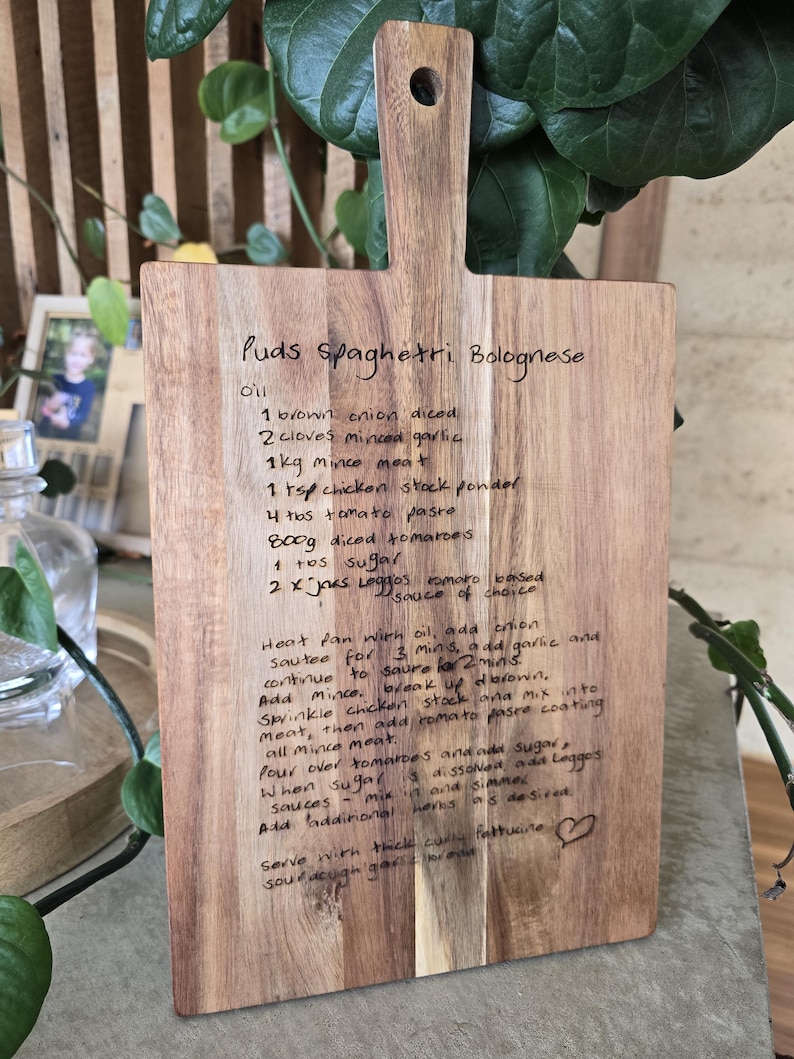 Puds Spaghetti Bolognese
Oil
1 brown onion diced
2 cloves minced garlic
1kg mince meat
1 tsp chicken stock powder
4 tbs tomato paste
800g diced tomatoes
1 tbs sugar
2 x jars Leggos tomato based
sauce of choice
Heat pan with oil, add onion
sautee for 3 mins, add garlic and
continue to saute for 2 mins.
Add mince, break up & brown.
Sprinkle chicken stock and mix into
meat, then add tomato paste coating
all mince meat.
Pour over tomatoes and add sugar,
When sugar is dissolved add Leggos
sauces - mix in and simmer
Add additional herbs as desired.
Serve with thick curly fettucine
sourdough garlic bread